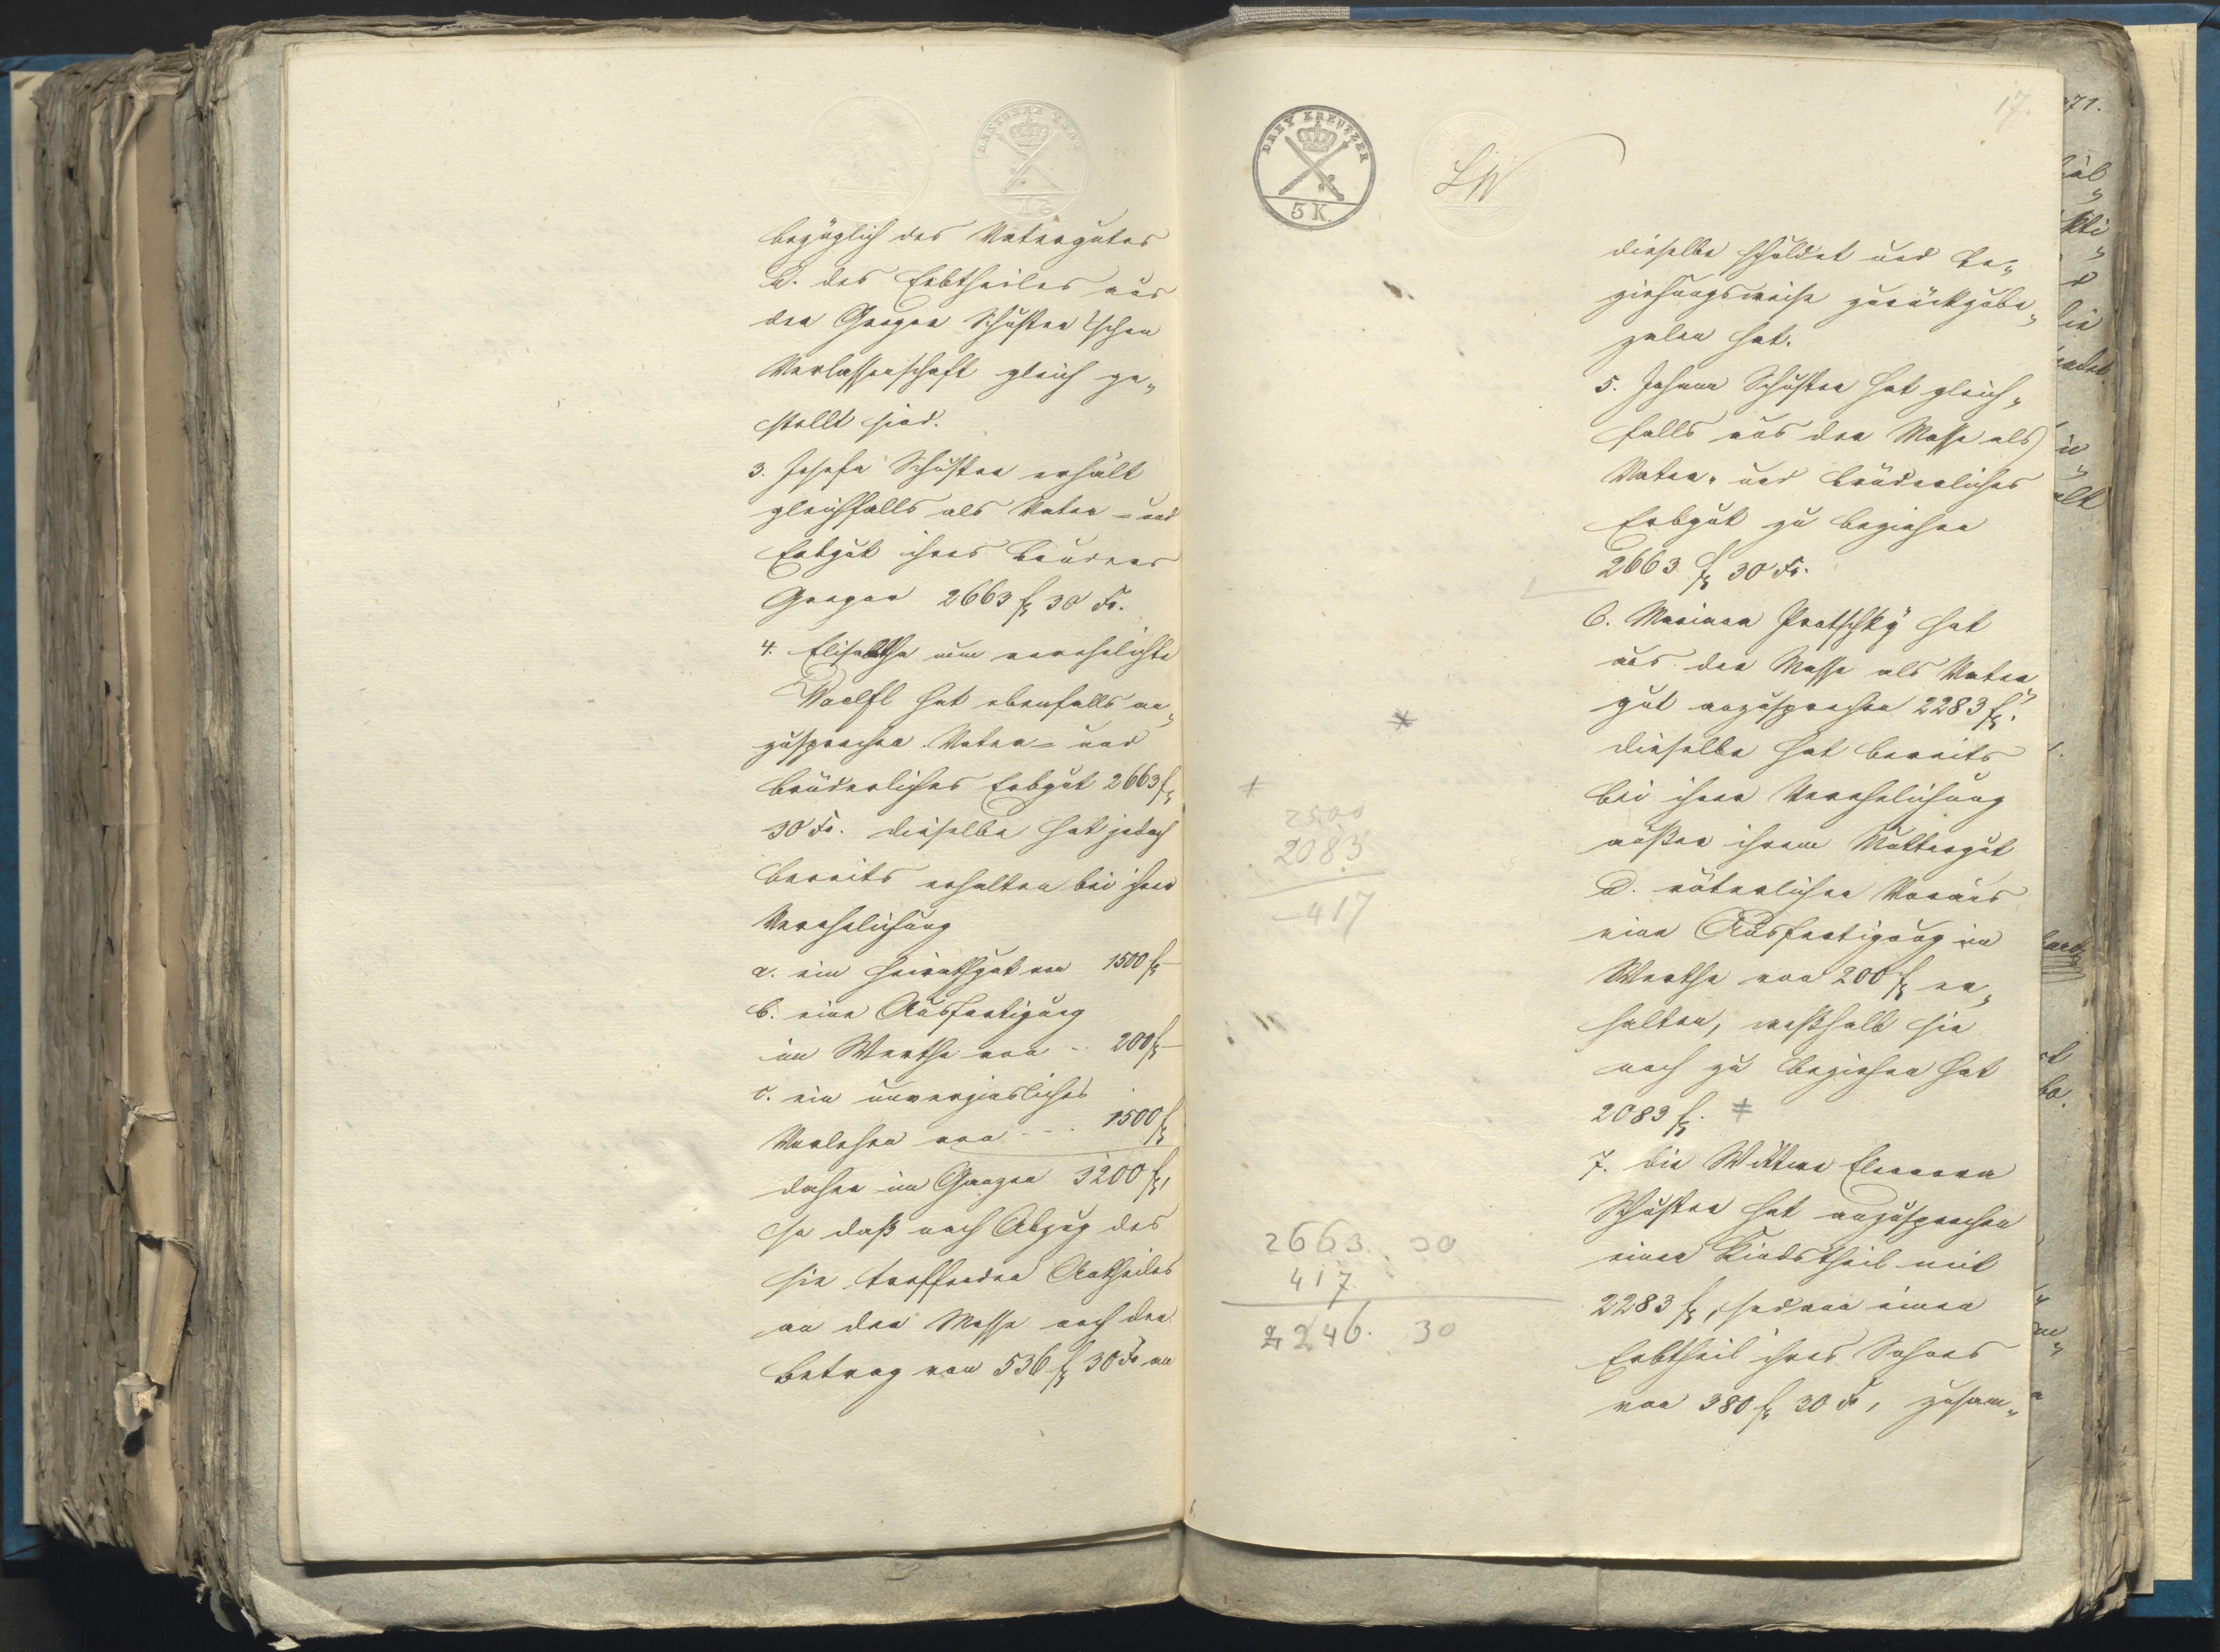 bezüglich des Vatergutes
u. des Erbtheiles aus
der Gregor Schuster'schen
Verlassenschaft gleich ge„
stellt sind.
3. Josefa Schuster erhält
gleichfalls als Vater= und
Erbgut ihres Bruders
Gregor 2663 f 30 Kr.
4. Elisabetha nun verehelichte
Woelfl hat ebenfalls an„
zusprechen Vater= und
brüderliches Erbgut 2663 f
30 Kr. dieselbe hat jedoch
bereits erhalten bei ihrer
Verehelichung
a. ein Heirathgut von 1500 f
b. eine Ausfertigung
im Werthe von .. 200 f
c. ein unverzinsliches
Vorlehen von ... 1500 f
daher im Ganzen 3200 f,
so daß nach Abzug des
sie treffenden Antheiles
an der Masse noch der
Betrag von 536 f 30 Kr an
DREY KREUTZER
3 K.
17.
dieselbe schuldet und be„
ziehungsweise zurückzube„
zalen hat.
5. Johann Schuster hat gleich„
falls aus der Masse als
Vater- und brüderliches
Erbgut zu beziehen
2663 f 30 Kr.
6. Mariana Protschky hat
aus der Masse als Vater„
gut anzusprechen 2283 f.
dieselbe hat bereits
bei ihrer Verehelichung
außer ihrem Muttergut
u. väterlichen Voraus
eine Ausfertigung im
Werthe von 200 f er„
halten, weßhalb sie
noch zu beziehen hat
2083 f. ≠
7. die Wittwe Eleonora
Schuster hat anzusprechen
einen Kindstheil mit
2283 f, sodann einen
Erbtheil ihres Sohnes
von 380 f 30 Kr, zusam„
2500
2083
417
2663. 30
417.
2246. 30